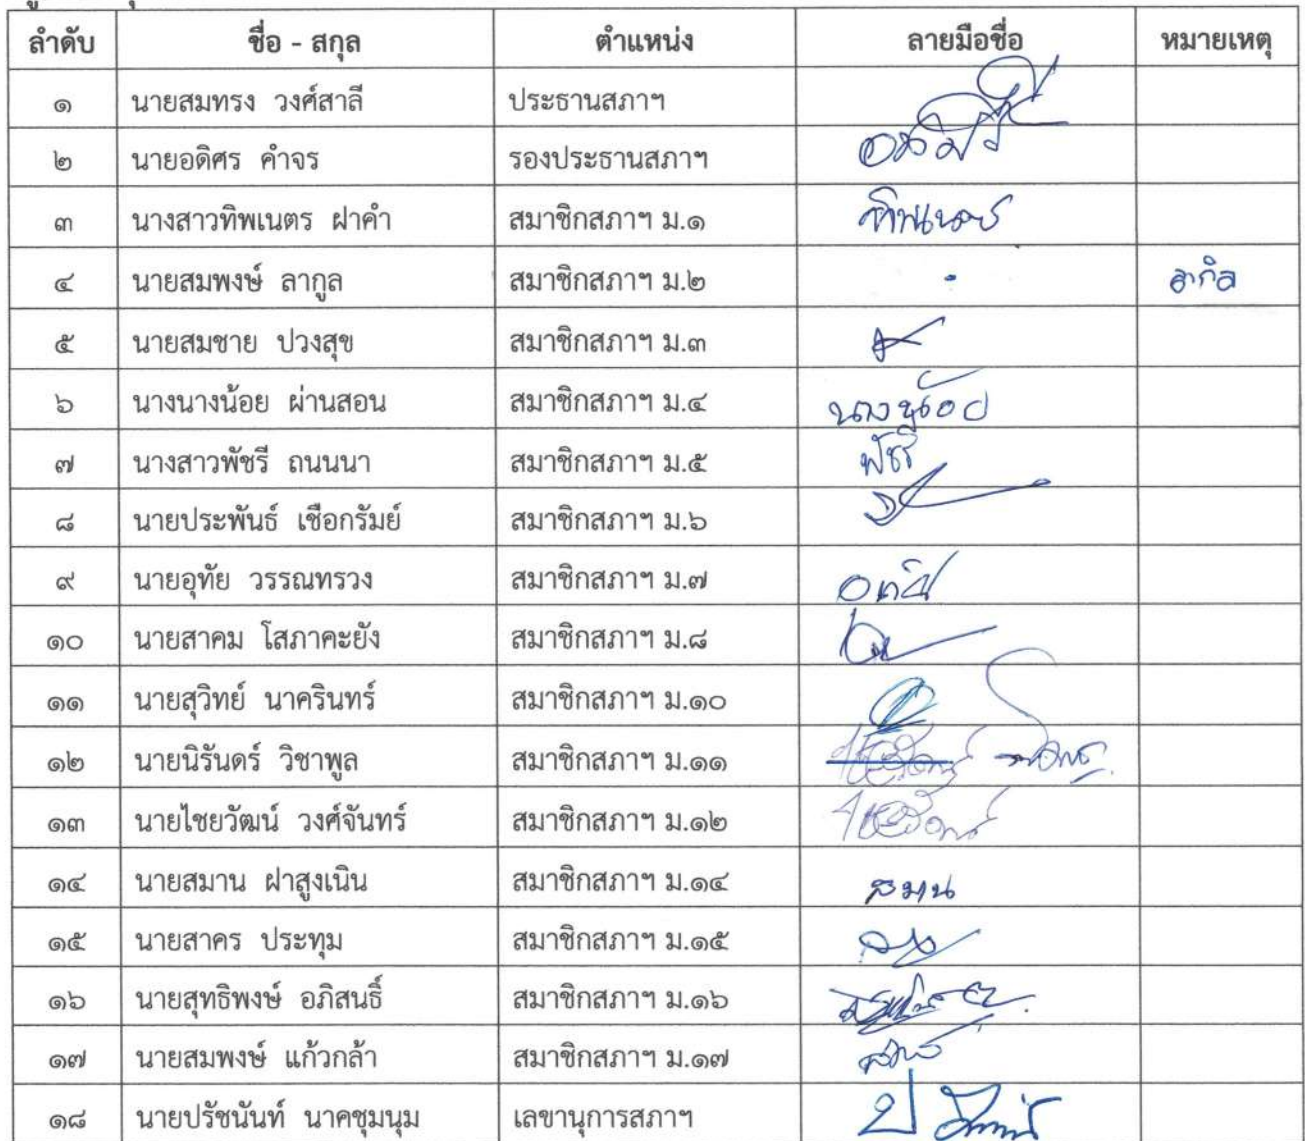 ลำดับ ชื่อ - สกุล ตำแหน่ง ลายมือชื่อ หมายเหตุ
๑ นายสมทรง วงศ์สาลี ประธานสภาฯ
๒ นายอดิศร คำจร รองประธานสภาฯ
๓ นางสาวทิพเนตร ฝาคำ สมาชิกสภาฯ ม.๑ ทิพเนตร
๔ นายสมพงษ์ ลากูล สมาชิกสภาฯ ม.๒ - ลากิจ
๕ นายสมชาย ปวงสุข สมาชิกสภาฯ ม.๓
๖ นางนางน้อย ผ่านสอน สมาชิกสภาฯ ม.๔ นางน้อย
๗ นางสาวพัชรี ถนนนา สมาชิกสภาฯ ม.๕ พัชรี
๘ นายประพันธ์ เชือกรัมย์ สมาชิกสภาฯ ม.๖
๙ นายอุทัย วรรณทรวง สมาชิกสภาฯ ม.๗ อุทัย
๑๐ นายสาคม โสภาคะยัง สมาชิกสภาฯ ม.๘
๑๑ นายสุวิทย์ นาครินทร์ สมาชิกสภาฯ ม.๑๐
๑๒ นายนิรันดร์ วิชาพูล สมาชิกสภาฯ ม.๑๑
๑๓ นายไชยวัฒน์ วงศ์จันทร์ สมาชิกสภาฯ ม.๑๒ ไชยวัฒน์
๑๔ นายสมาน ฝาสูงเนิน สมาชิกสภาฯ ม.๑๔ สมาน
๑๕ นายสาคร ประทุม สมาชิกสภาฯ ม.๑๕
๑๖ นายสุทธิพงษ์ อภิสนธิ์ สมาชิกสภาฯ ม.๑๖
๑๗ นายสมพงษ์ แก้วกล้า สมาชิกสภาฯ ม.๑๗
๑๘ นายปรัชนันท์ นาคชุมนุม เลขานุการสภาฯ